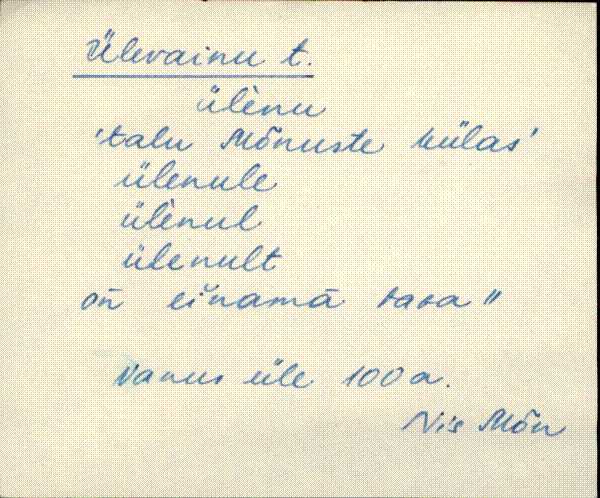 Ülevainu t.
ülènu
'talu Mõnuste külas'
ülenule
ülènul
ülenult
on einamā tasa"
Vanus üle 100 a.
Nis Mõn